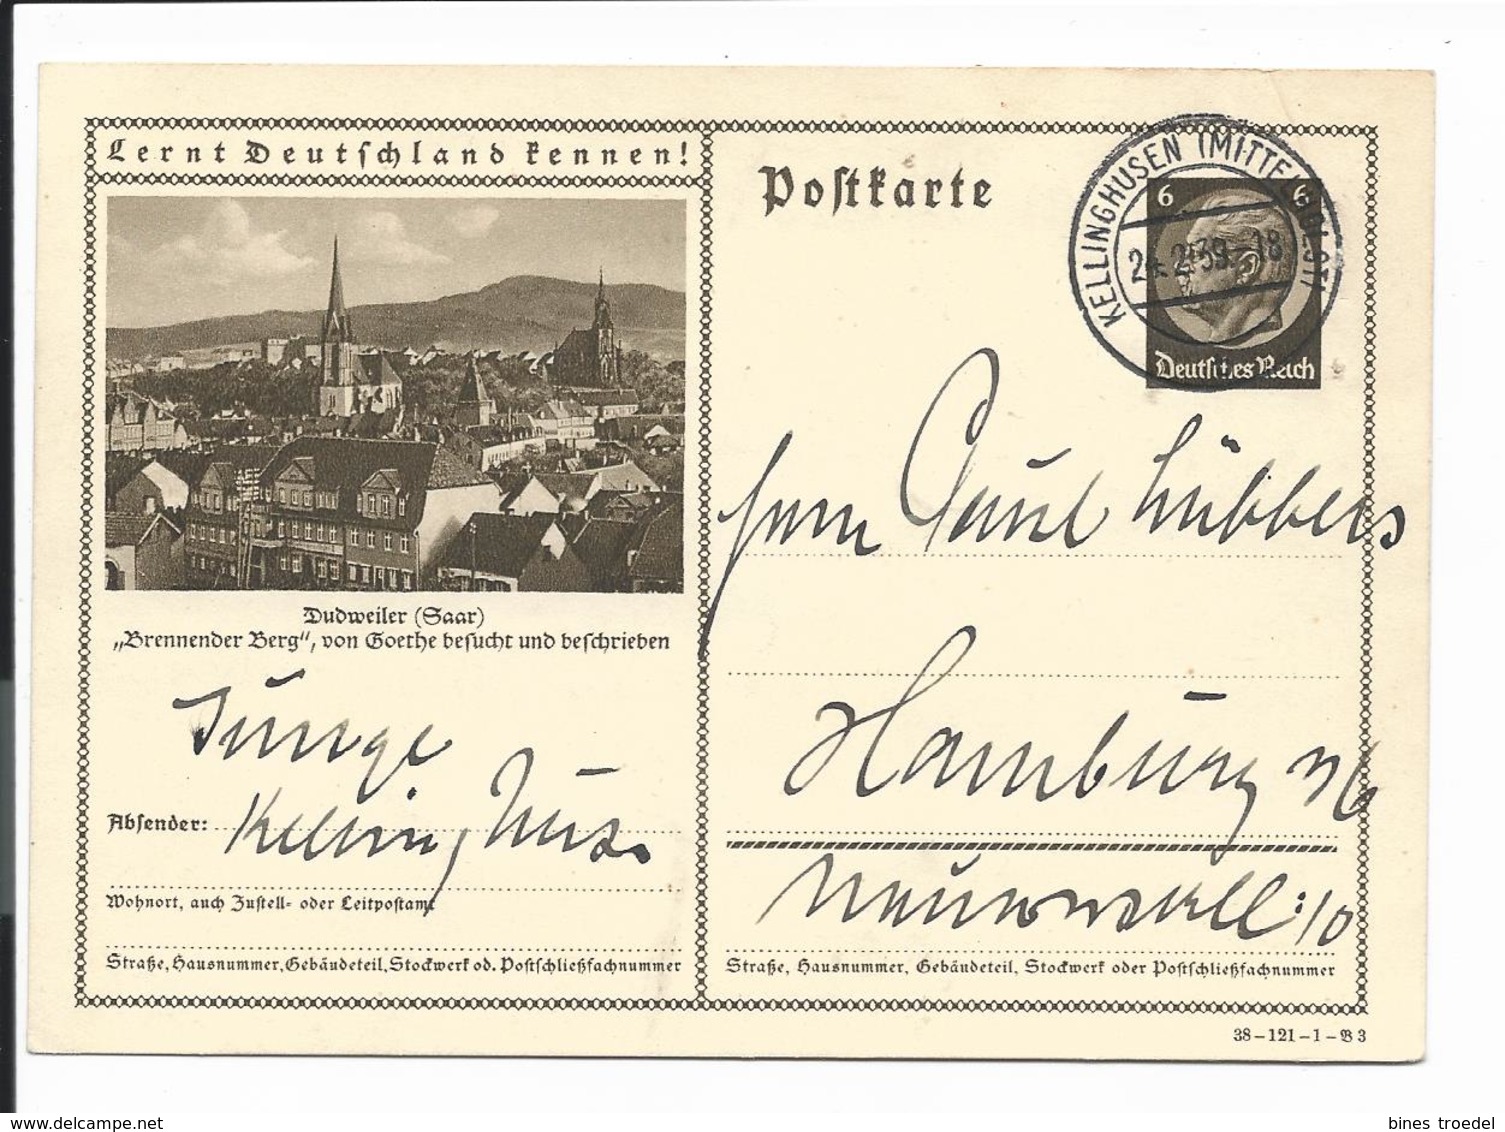 Lernt Deutschland kennen!
Postkarte
KELLINGHUSEN (MITTELHOLST)
24.2.39.-18
6 6
Deutsches Reich
Dudweiler (Saar)
„Brennender Berg“, von Goethe besucht und beschrieben
Herrn Paul Lübbers
Hamburg 36
Neuerwall 10
Junge
Absender: Kellinghus.
Wohnort, auch Zustell- oder Leitpostamt
Straße, Hausnummer, Gebäudeteil, Stockwerk od. Postschließfachnummer
Straße, Hausnummer, Gebäudeteil, Stockwerk oder Postschließfachnummer
38-121-1-B 3
www.delcampe.net
bines troedel